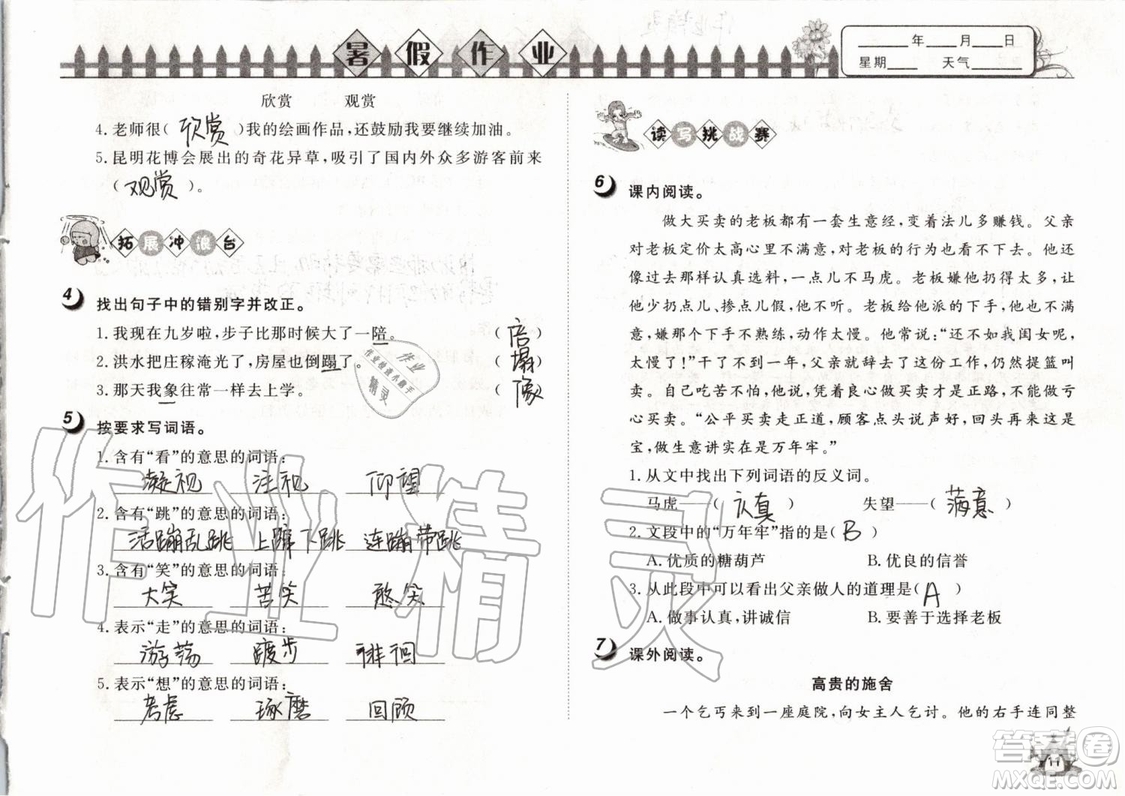 暑假作业
____年____月____日
星期____ 天气____
欣赏 观赏
4.老师很(欣赏)我的绘画作品,还鼓励我要继续加油。
5.昆明花博会展出的奇花异草,吸引了国内外众多游客前来
(观赏)。
拓展冲浪台
4 找出句子中的错别字并改正。
1.我现在九岁啦,步子比那时候大了一陪。 (倍)
2.洪水把庄稼淹光了,房屋也倒蹋了。 (塌)
3.那天我象往常一样去上学。 (像)
5 按要求写词语。
1.含有“看”的意思的词语:
凝视 注视 仰望
2.含有“跳”的意思的词语:
活蹦乱跳 上蹿下跳 连蹦带跳
3.含有“笑”的意思的词语:
大笑 苦笑 憨笑
4.表示“走”的意思的词语:
游荡 踱步 徘徊
5.表示“想”的意思的词语:
考虑 琢磨 回顾
读写挑战赛
6 课内阅读。
做大买卖的老板都有一套生意经,变着法儿多赚钱。父亲
对老板定价太高心里不满意,对老板的行为也看不惯。他还
像过去那样认真选料,一点儿不马虎。老板嫌他扔得多,还
让他少扔点儿、掺点儿假,他不干。老板给他派的下手,他嫌
麻烦,那个下手不熟练,动作太慢。他常说:“还不如我闺女呢,
太慢了!”干了不到一年,父亲就辞去了这份工作,仍然提篮叫
卖。起早贪黑,吃苦不怕,他说,凡事看起来走正路,不能做亏
心买卖。“公平买卖走正道,顾客点头说声好,回头再来是个
宝,做生意讲实在是万年牢。”
1.从文中找出下列词语的反义词。
马虎——(认真) 失望——(满意)
2.文段中的“万年牢”指的是(B)
A.优质的糖葫芦 B.优良的信誉
3.从此段中可以看出父亲做人的道理是(A)
A.做事认真,讲诚信 B.要善于选择老板
7 课外阅读。
高贵的施舍
一个乞丐来到一座庭院,向女主人乞讨。他的右手连同整
11
作业精灵
答案圈
MXQE.COM